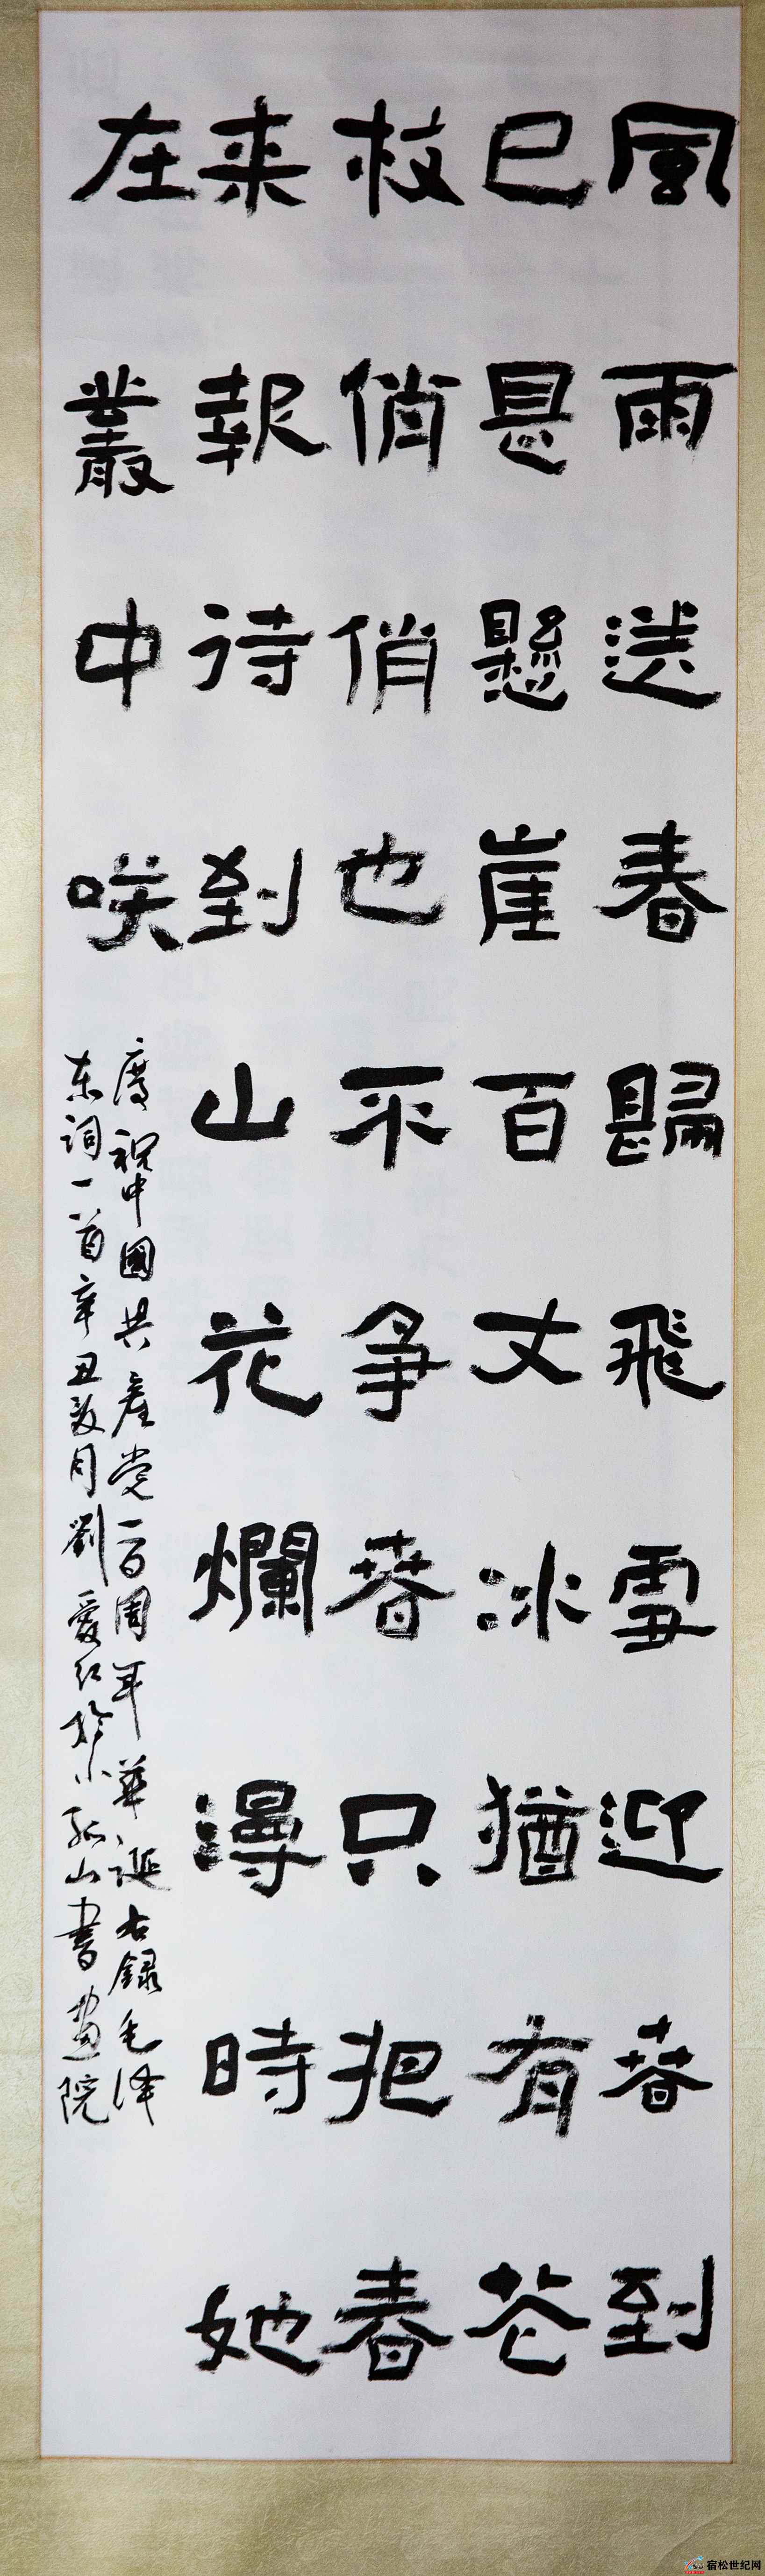 風雨送春歸飛雪迎春到
已是懸崖百丈冰猶有花
枝俏俏也不争春只把春
来報待到山花爛漫時她
在叢中咲
慶祝中國共産党一百周年華誕右録毛泽
东词一首辛丑夏月劉爱红於小孤山書畫院
宿松世纪网